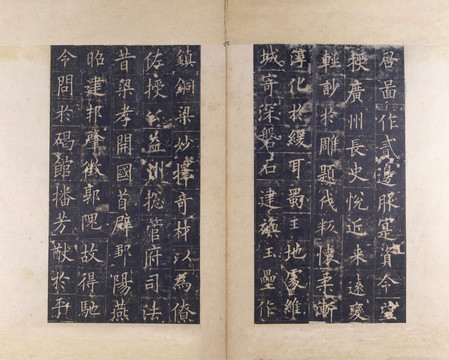 作貳邊服寔資令望
授廣州長史悅近來遠變
輕訬於雕題伐叛懷柔漸
淳化於緩耳蜀王地處維
城寄深磐石建旟玉壘作
鎮銅梁妙擇奇材以為僚
佐授公益州揔管府司法
昔梁孝開國首辟鄒陽燕
昭建邦肇徵郭隗故得馳
令問於碣館播芳猷於平